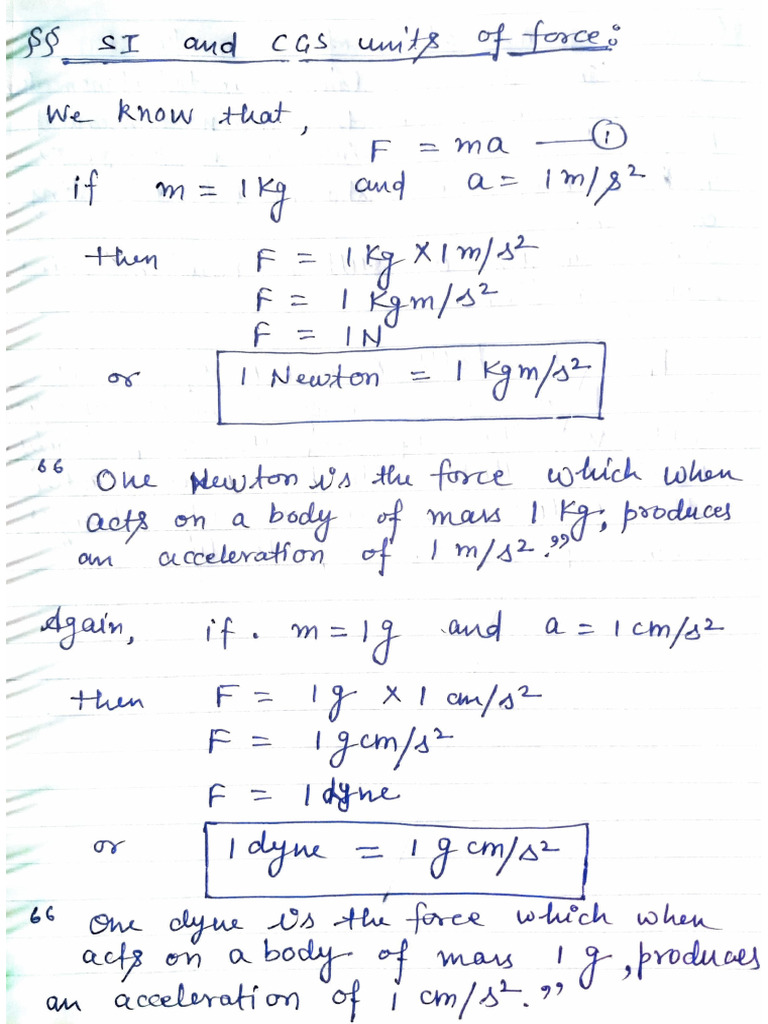 §§ SI and CGS units of force:
We know that,
F = ma —— ①
if m = 1 Kg and a = 1 m/s²
then F = 1 Kg × 1 m/s²
F = 1 Kgm/s²
F = 1N
or 1 Newton = 1 Kgm/s²
“ One Newton is the force which when
acts on a body of mass 1 Kg, produces
an acceleration of 1 m/s².”
Again, if. m = 1g and a = 1 cm/s²
then F = 1g × 1 cm/s²
F = 1 gcm/s²
F = 1 dyne
or 1 dyne = 1 g cm/s²
“ One dyne is the force which when
acts on a body of mass 1 g, produces
an acceleration of 1 cm/s².”